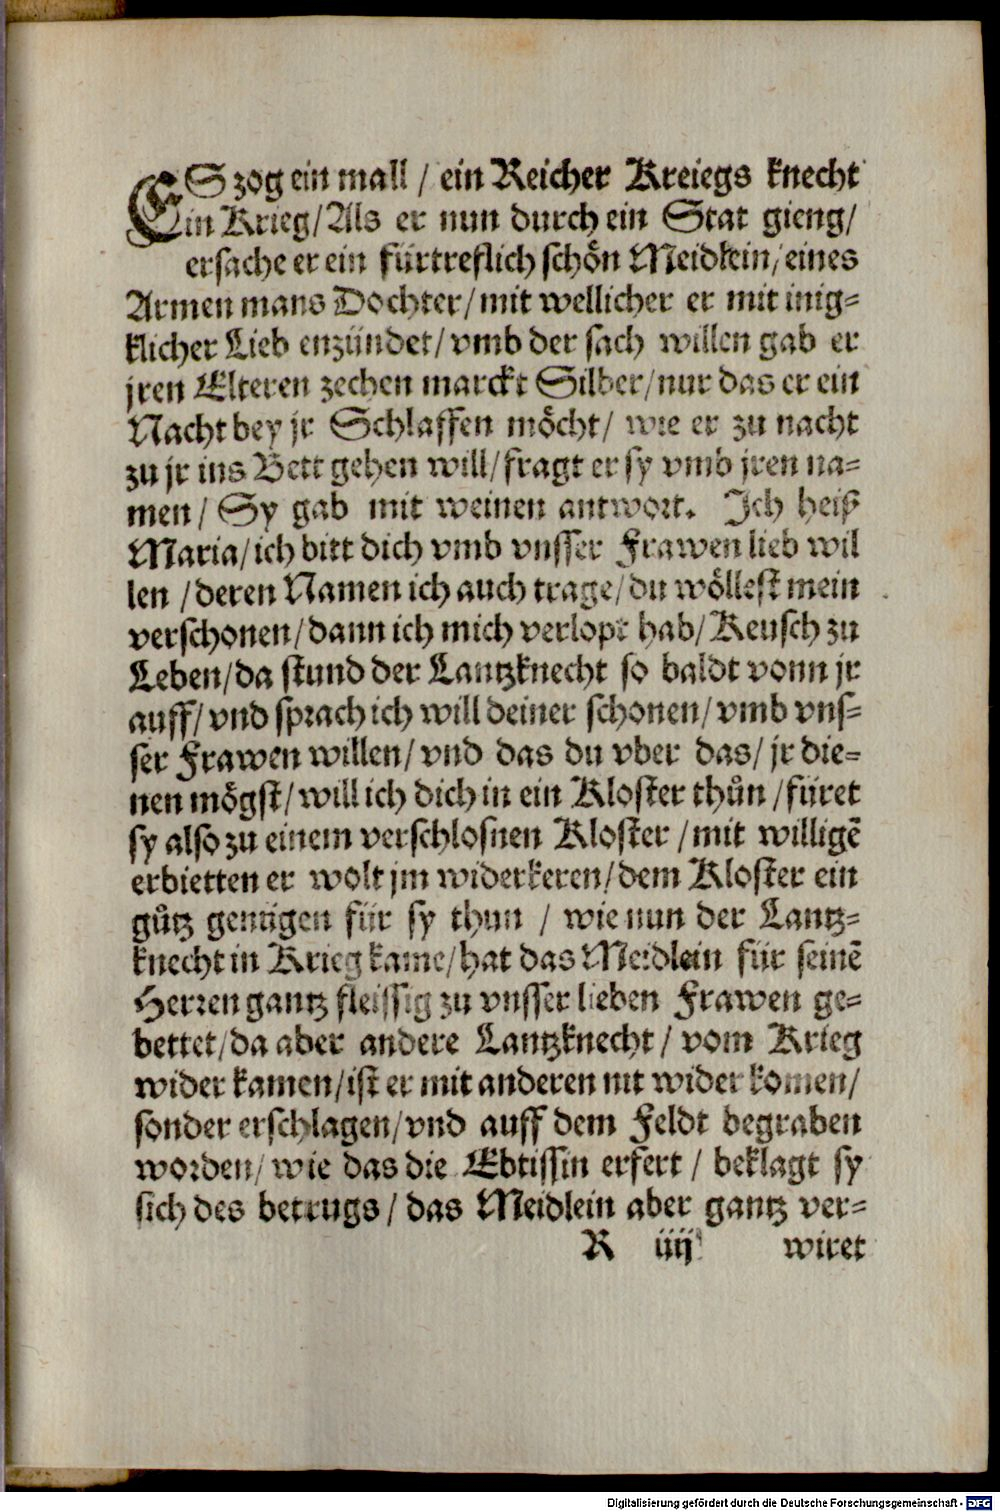 ES zog ein mall / ein Reicher Kreiegs knecht
in Krieg/ Als er nun durch ein Stat gieng/
ersache er ein fürtreflich schön Meidlein/ eines
Armen mans Dochter/ mit wellicher er mit inig-
klicher Lieb enzündet/ vmb der sach willen gab er
jren Elteren zechen marckt Silber/ nur das er ein
Nacht bey jr Schlaffen möcht/ wie er zu nacht
zu jr ins Bett gehen will/ fragt er sy vmb jren na-
men/ Sy gab mit weinen antwort. Ich heiß
Maria/ ich bitt dich vmb vnsser Frawen lieb wil
len / deren Namen ich auch trage/ du wöllest mein
verschonen/ dann ich mich verlopt hab/ Keusch zu
Leben/ da stund der Lantzknecht so baldt vonn jr
auff/ vnd sprach ich will deiner schonen/ vmb vns-
ser Frawen willen/ vnd das du vber das/ jr die-
nen mögst/ will ich dich in ein Kloster thůn / füret
sy also zu einem verschlosnen Kloster / mit willigē
erbietten er wolt jm widerkeren/ dem Kloster ein
gůtz genügen für sy thun / wie nun der Lantz-
knecht in Krieg kame/ hat das Meidlein für seinē
Herren gantz fleissig zu vnsser lieben Frawen ge-
bettet/ da aber andere Lantzknecht/ vom Krieg
wider kamen/ ist er mit anderen nit wider komen/
sonder erschlagen/ vnd auff dem Feldt begraben
worden/ wie das die Ebtissin erfert / beklagt sy
sich des betrugs/ das Meidlein aber gantz ver-
R iiij wiret
Digitalisierung gefördert durch die Deutsche Forschungsgemeinschaft - DFG